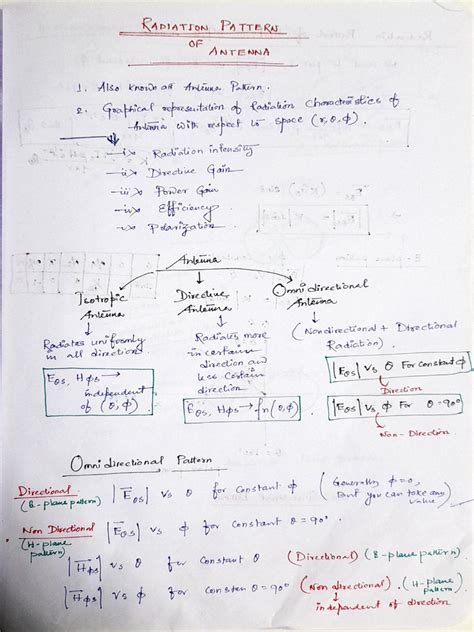 RADIATION PATTERN
OF
ANTENNA
1. Also known as Antenna Pattern.
2. Graphical representation of radiation characteristics of
Antenna with respect to space (r, θ, ϕ).
i> Radiation intensity
ii> Directive Gain
iii> Power Gain
iv> Efficiency
v> Polarization
Antenna
Isotropic
Antenna
Radiates uniformly
in all direction
Eθs, Hϕs →
independent
of (θ, ϕ)
Directive
Antenna
Radiates more
in certain
direction and
less certain
direction
Eθs, Hϕs → fn(θ, ϕ)
Omnidirectional
Antenna
(Nondirectional + Directional
Radiation)
|Eθs| vs θ For constant ϕ
Direction
|Eθs| vs ϕ For θ = 90°
Non-Direction
Omnidirectional Pattern
Directional
(E-plane pattern)
|Eθs| vs θ for constant ϕ (Generally ϕ=0,
But you can take any
value)
Non Directional
(H-plane
pattern)
|Eθs| vs ϕ for constant θ = 90°
|Hϕs| vs θ for constant ϕ (Directional) (E-plane pattern)
|Hϕs| vs ϕ for consten θ = 90° (Non directional). (H-plane
pattern)
independent of direction